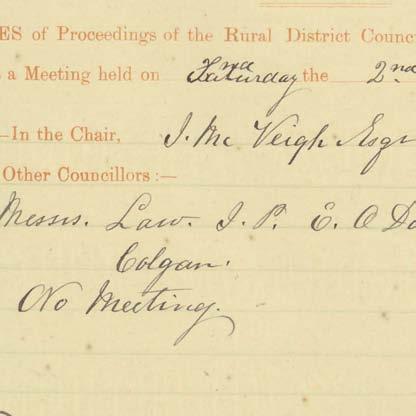 ES of Proceedings of the Rural District Counc
a Meeting held on Saturday the 2nd
—In the Chair, J. Mc Veigh Esqr
Other Councillors :—
Messrs. Law. J. P. E. O Do
Colgan.
No Meeting.